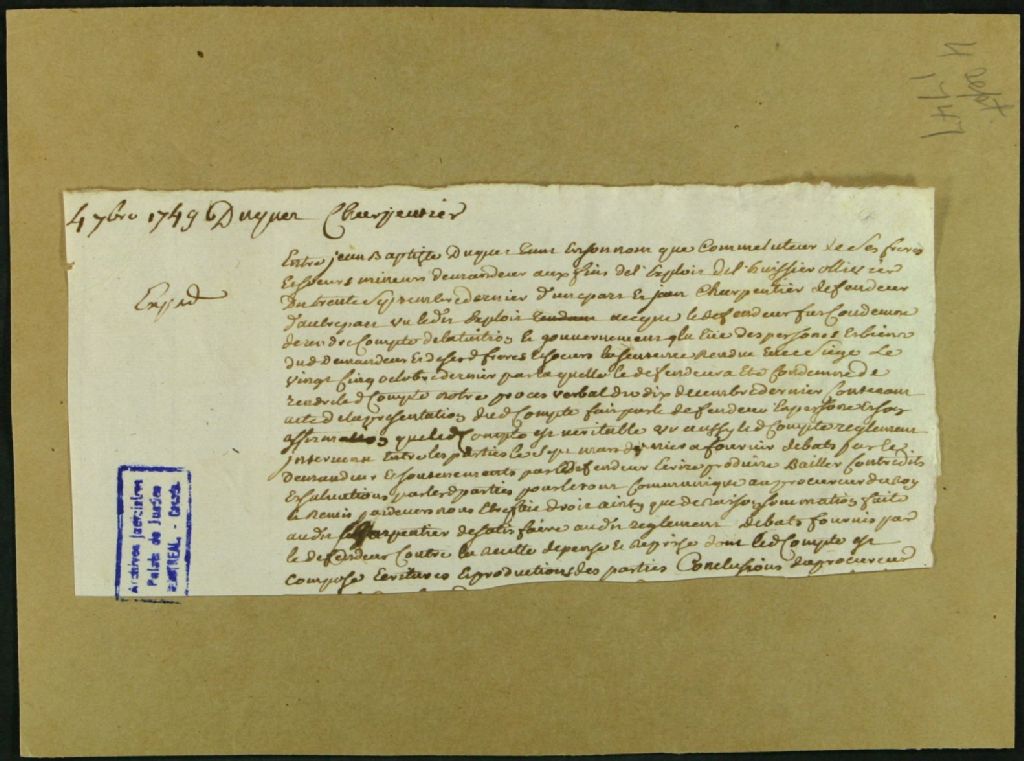 4 7bre 1749 Duquet Charpentier
Exped
Entre jean Baptiste Duquet tant En son nom que Comme tuteur de Ses freres
Et soeurs mineurs demandeur aux fins de l'Exploit de l'huissier
Du trente Septembre dernier d'une part Et jean Charpentier defendeur
d'autre part vu ledit Exploit tendant aceque le defendeur fut Condemné
de rendre Compte de la tuition Et gouvernement qla Eüe des personnes Et biens
dud Demandeur Et desesd freres Et soeurs la sentence Rendue En ce Siege Le
vingt Cinq octobre dernier par laquelle le defendeur a Eté Condemné de
rendre led Compte notre proces verbal du dix decembre dernier Contenant
acte de la presentation dud Compte fait par le defendeur En personne Et son
affirmation que led Compte est veritable vu aussy led Compte reglement
Intervenu Entre les parties le Sept mars dernier a fournir debats par le
Demandeur Et soutenements par le defendeur Ecrire produire Bailler Contredits
Et salvations par lesd parties pour le tout Communiqué au procureur du Roy
Et Remis pardevers nous Etre fait droit ainsy que de raison Sommation faite
audit Charpentier de satisfaire audit reglement debats fournis par
le defendeur Contre la Recette depense Et Reprise dont led Compte est
Composé Ecritures Et productions des parties Conclusions du procureur
Archives judiciaires
Palais de Justice
MONTREAL
1747
4 sept